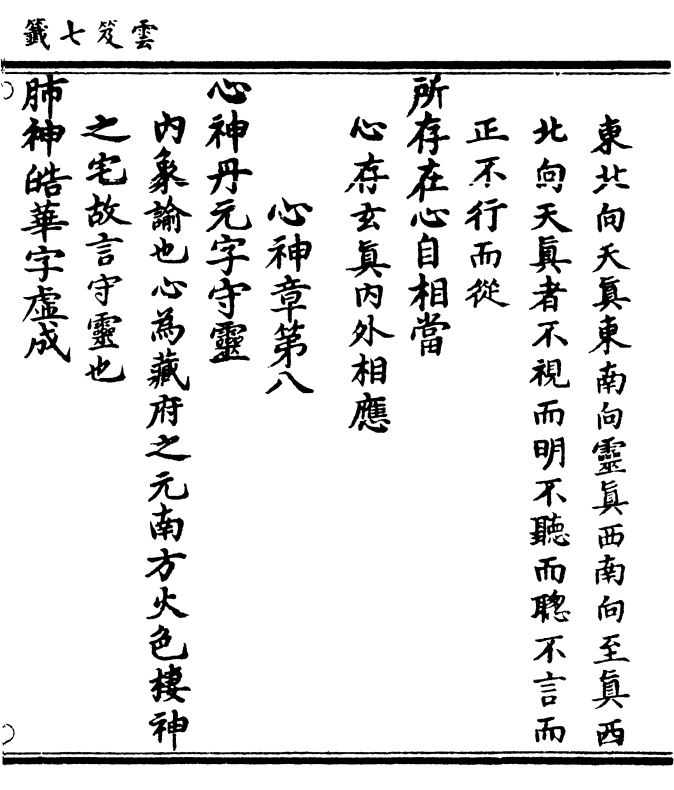 雲笈七籤
東北向天眞東南向靈眞西南向至眞西
北向天眞者不視而明不聽而聰不言而
正不行而從
所存在心自相當
心存玄眞內外相應
心神章第八
心神丹元字守靈
內象諭也心為藏府之元南方火色棲神
之宅故言守靈也
肺神皓華字虛成